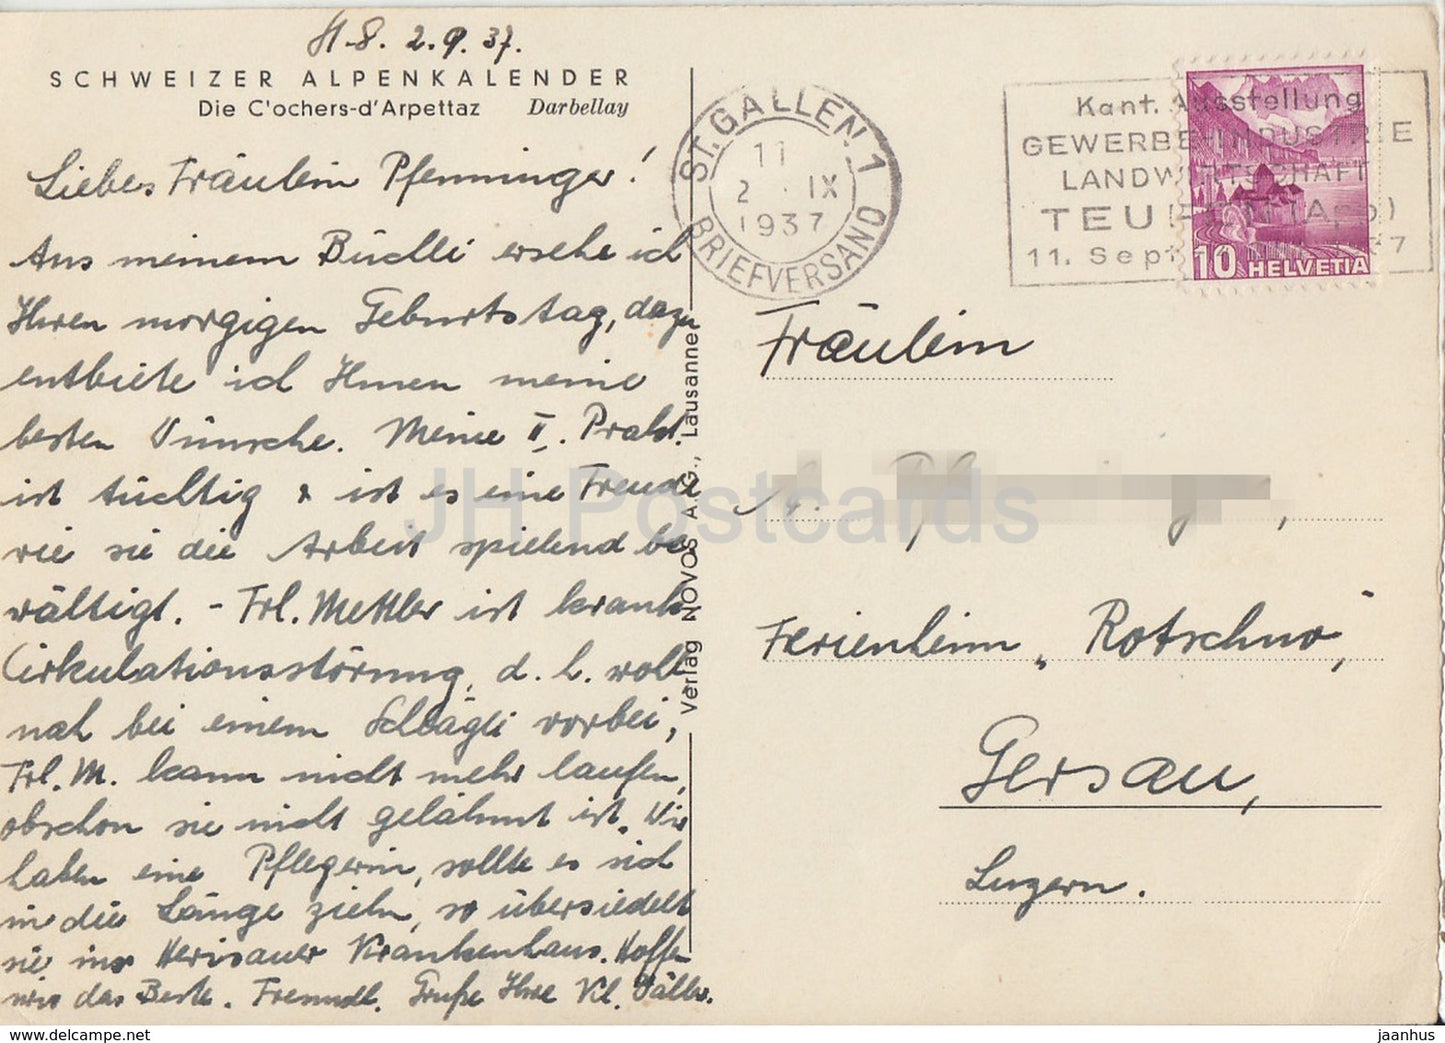 H-S. 2.9.37.
SCHWEIZER ALPENKALENDER
Die C'ochers-d'Arpettaz Darbellay
Liebes Fräulein Pfenninger!
Aus meinem Büchli ersehe ich
Ihren morgigen Geburtstag, dazu
entbiete ich Ihnen meine
besten Wünsche. Meine II. Prakt.
ist tüchtig & ist es eine Freude
wie sie die Arbeit spielend be
wältigt. - Frl. Mettler ist krank
Cirkulationsstörung, d. h. wohl
nah bei einem Schlägli vorbei,
Frl. M. kann nicht mehr laufen,
obschon sie nicht gelähmt ist. Wir
haben eine Pflegerin, sollte es sich
in die Länge ziehn, so übersiedelt
sie ins Herisauer Krankenhaus. Hoffen
wir das Beste. Freundl. Grüße Ihre Kl.
Verlag NOVOS A.-G., Lausanne
ST. GALLEN 1
11
2. IX
1937
BRIEFVERSAND
Kant. Ausstellung
GEWERBE-INDUSTRIE
LANDWIRTSCHAFT
TEUFEN (App)
11. Sept 37
10 HELVETIA
Fräulein
Ferienheim „Rotschuo",
Gersau,
Luzern.
JH Postcards
www.delcampe.net
jaanhus